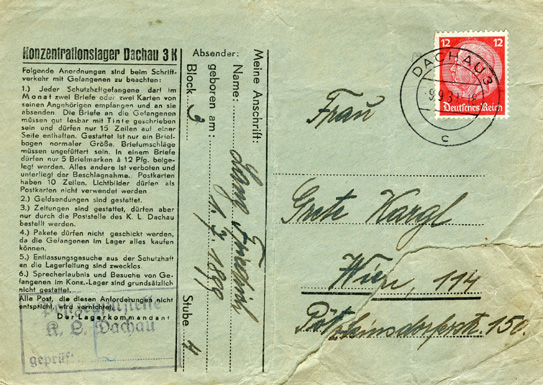 Konzentrationslager Dachau 3 K
Folgende Anordnungen sind beim Schrift-
verkehr mit Gefangenen zu beachten:
1.) Jeder Schutzhaftgefangene darf im
Monat zwei Briefe oder zwei Karten von
seinen Angehörigen empfangen und an sie
absenden. Die Briefe an die Gefangenen
müssen gut lesbar mit Tinte geschrieben
sein und dürfen nur 15 Zeilen auf einer
Seite enthalten. Gestattet ist nur ein Brief-
bogen normaler Größe. Briefumschläge
müssen ungefüttert sein. In einem Briefe
dürfen nur 5 Briefmarken à 12 Pfg. beige-
legt werden. Alles andere ist verboten und
unterliegt der Beschlagnahme. Postkarten
haben 10 Zeilen. Lichtbilder dürfen als
Postkarten nicht verwendet werden.
2.) Geldsendungen sind gestattet.
3.) Zeitungen sind gestattet, dürfen aber
nur durch die Poststelle des K. L. Dachau
bestellt werden.
4.) Pakete dürfen nicht geschickt werden,
da die Gefangenen im Lager alles kaufen
können.
5.) Entlassungsgesuche aus der Schutzhaft
an die Lagerleitung sind zwecklos.
6.) Sprecherlaubnis und Besuche von Ge-
fangenen im Konz.-Lager sind grundsätzlich
nicht gestattet.
Alle Post, die diesen Anforderungen nicht
entspricht, wird vernichtet.
Der Lagerkommandant
K. L. Dachau
geprüft:
Absender:
Meine Anschrift:
Name:
geboren am:
Block 9
Stube 4
12 12
Deutsches Reich
DACHAU 3
c
Frau
Grete Kargl
Wien, 114